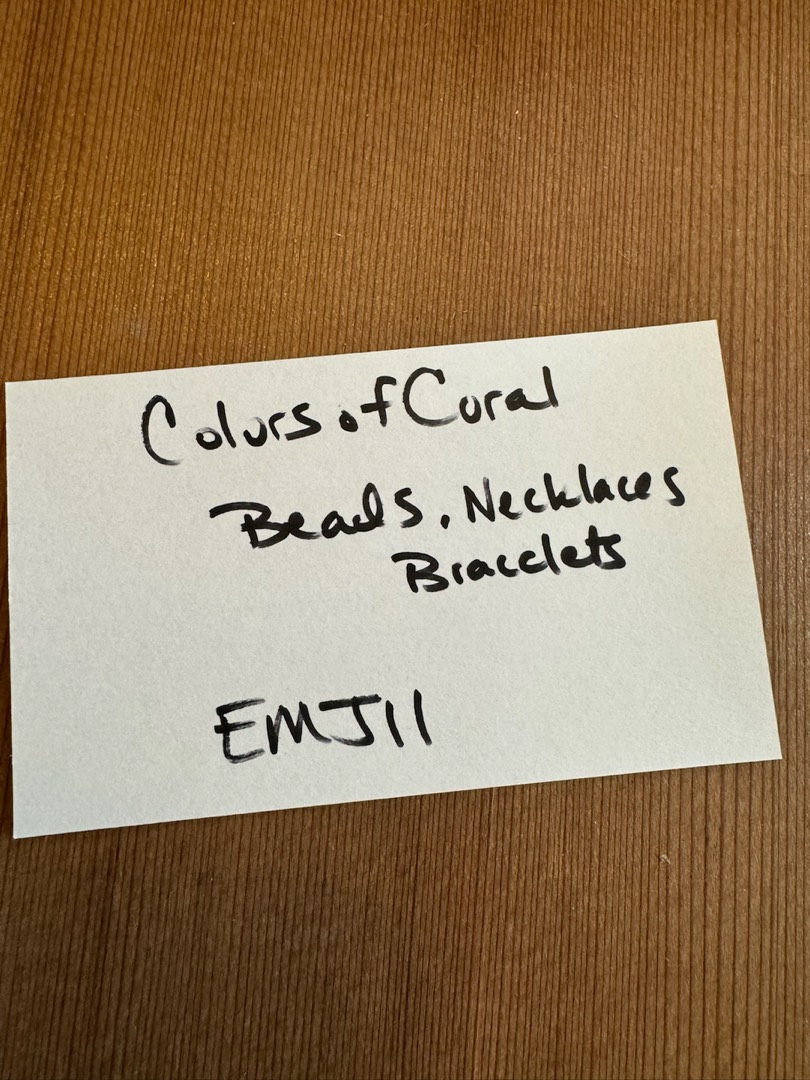 Colors of Coral
Beads, Necklaces
Bracelets
EMJ11